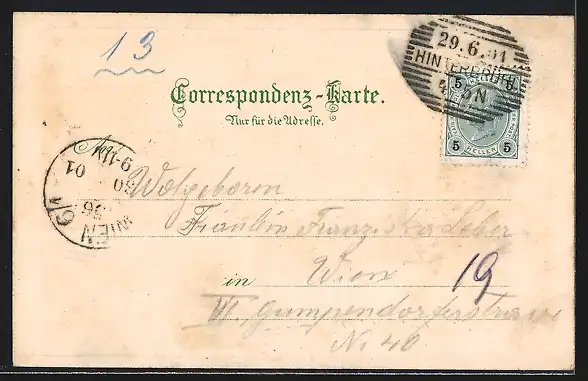 13
29.6.01
HINTERBRÜHL
4-5N
Correspondenz-Karte.
Nur für die Adresse.
5 5
HELLER
5 5
9-11V
30
01
96
WIEN 6/1
An
Wolgeboren
Fräulein Franziska Leher
in Wien 19
VI. Gumpendorferstrasse
No 40